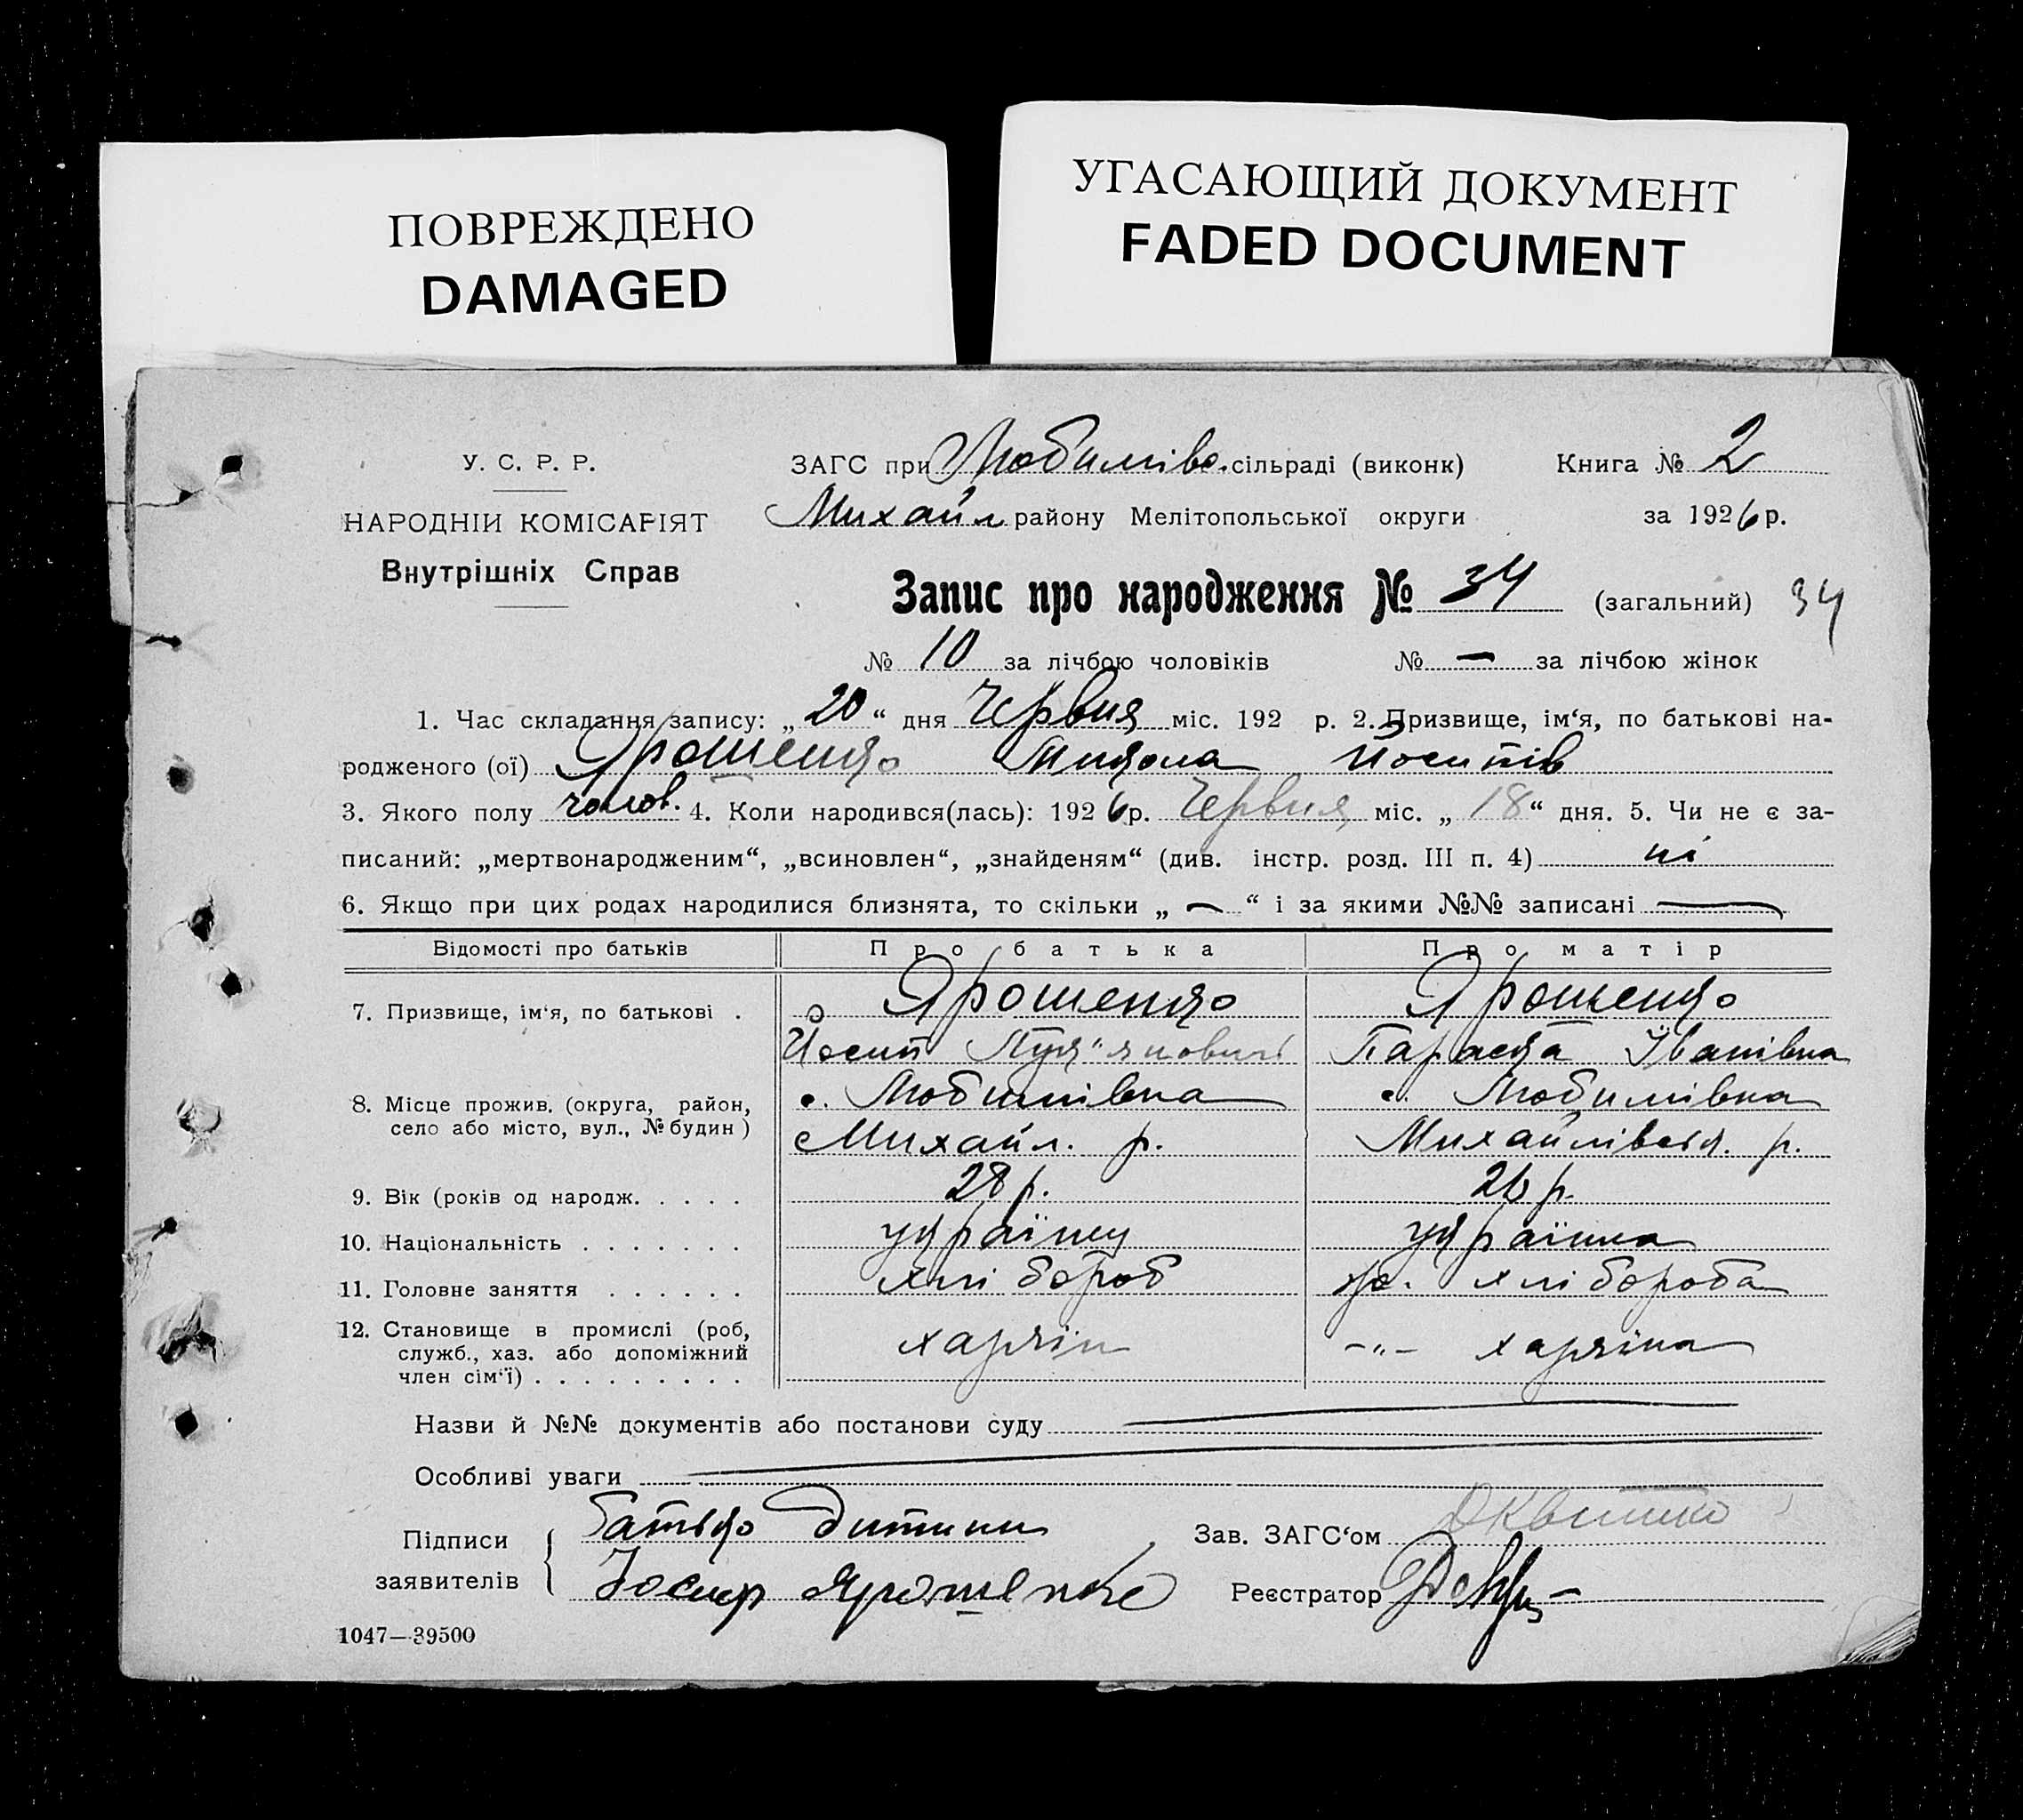 ПОВРЕЖДЕНО
DAMAGED
УГАСАЮЩИЙ ДОКУМЕНТ
FADED DOCUMENT
У. С. Р. Р.
НАРОДНІЙ КОМІСАРІЯТ
Внутрішніх Справ
ЗАГС при Любимівс. сільраді (виконк)
Книга № 2
Михайл районy Мелітопольської округи
за 1926 р.
Запис про народження № 34 (загальний) 34
№ 10 за лічбою чоловіків № — за лічбою жінок
1. Час складання запису: „20“ дня Червня міс. 192 р. 2. Призвище, ім‘я, по батькові на-
родженого (ої) Ярошенко Микола Йосипів
3. Якого полу чолов. 4. Коли народився(лась): 1926 р. Червня міс. „18“ дня. 5. Чи не є за-
писаний: „мертвонародженим“, „всиновлен“, „знайденям“ (див. інстр. розд. III п. 4) ні
6. Якщо при цих родах народилися близнята, то скільки „—“ і за якими №№ записані —
Відомості про батьків Про батька Про матір
7. Призвище, ім‘я, по батькові . Ярошенко Ярошенко
Йосип Лук"янович Параска Іванівна
8. Місце прожив. (округа, район, с. Любимівка с. Любимівка
село або місто, вул., № будин) Михайл. р. Михайлівськ. р.
9. Вік (років од народж. . . . . 28 р. 26 р.
10. Національність . . . . . . . українц українка
11. Головне заняття . . . . . . хлібороб хлібороба
12. Становище в промислі (роб, хазяїн -"- хазяїна
служб., хаз. або допоміжний
член сім‘ї) . . . . . . . . .
Назви й №№ документів або постанови суду
Особливі уваги
Підписи
заявителів
батько дитини
Иосиф Ярошенко
Зав. ЗАГС‘ом
Реєстратор
1047—39500